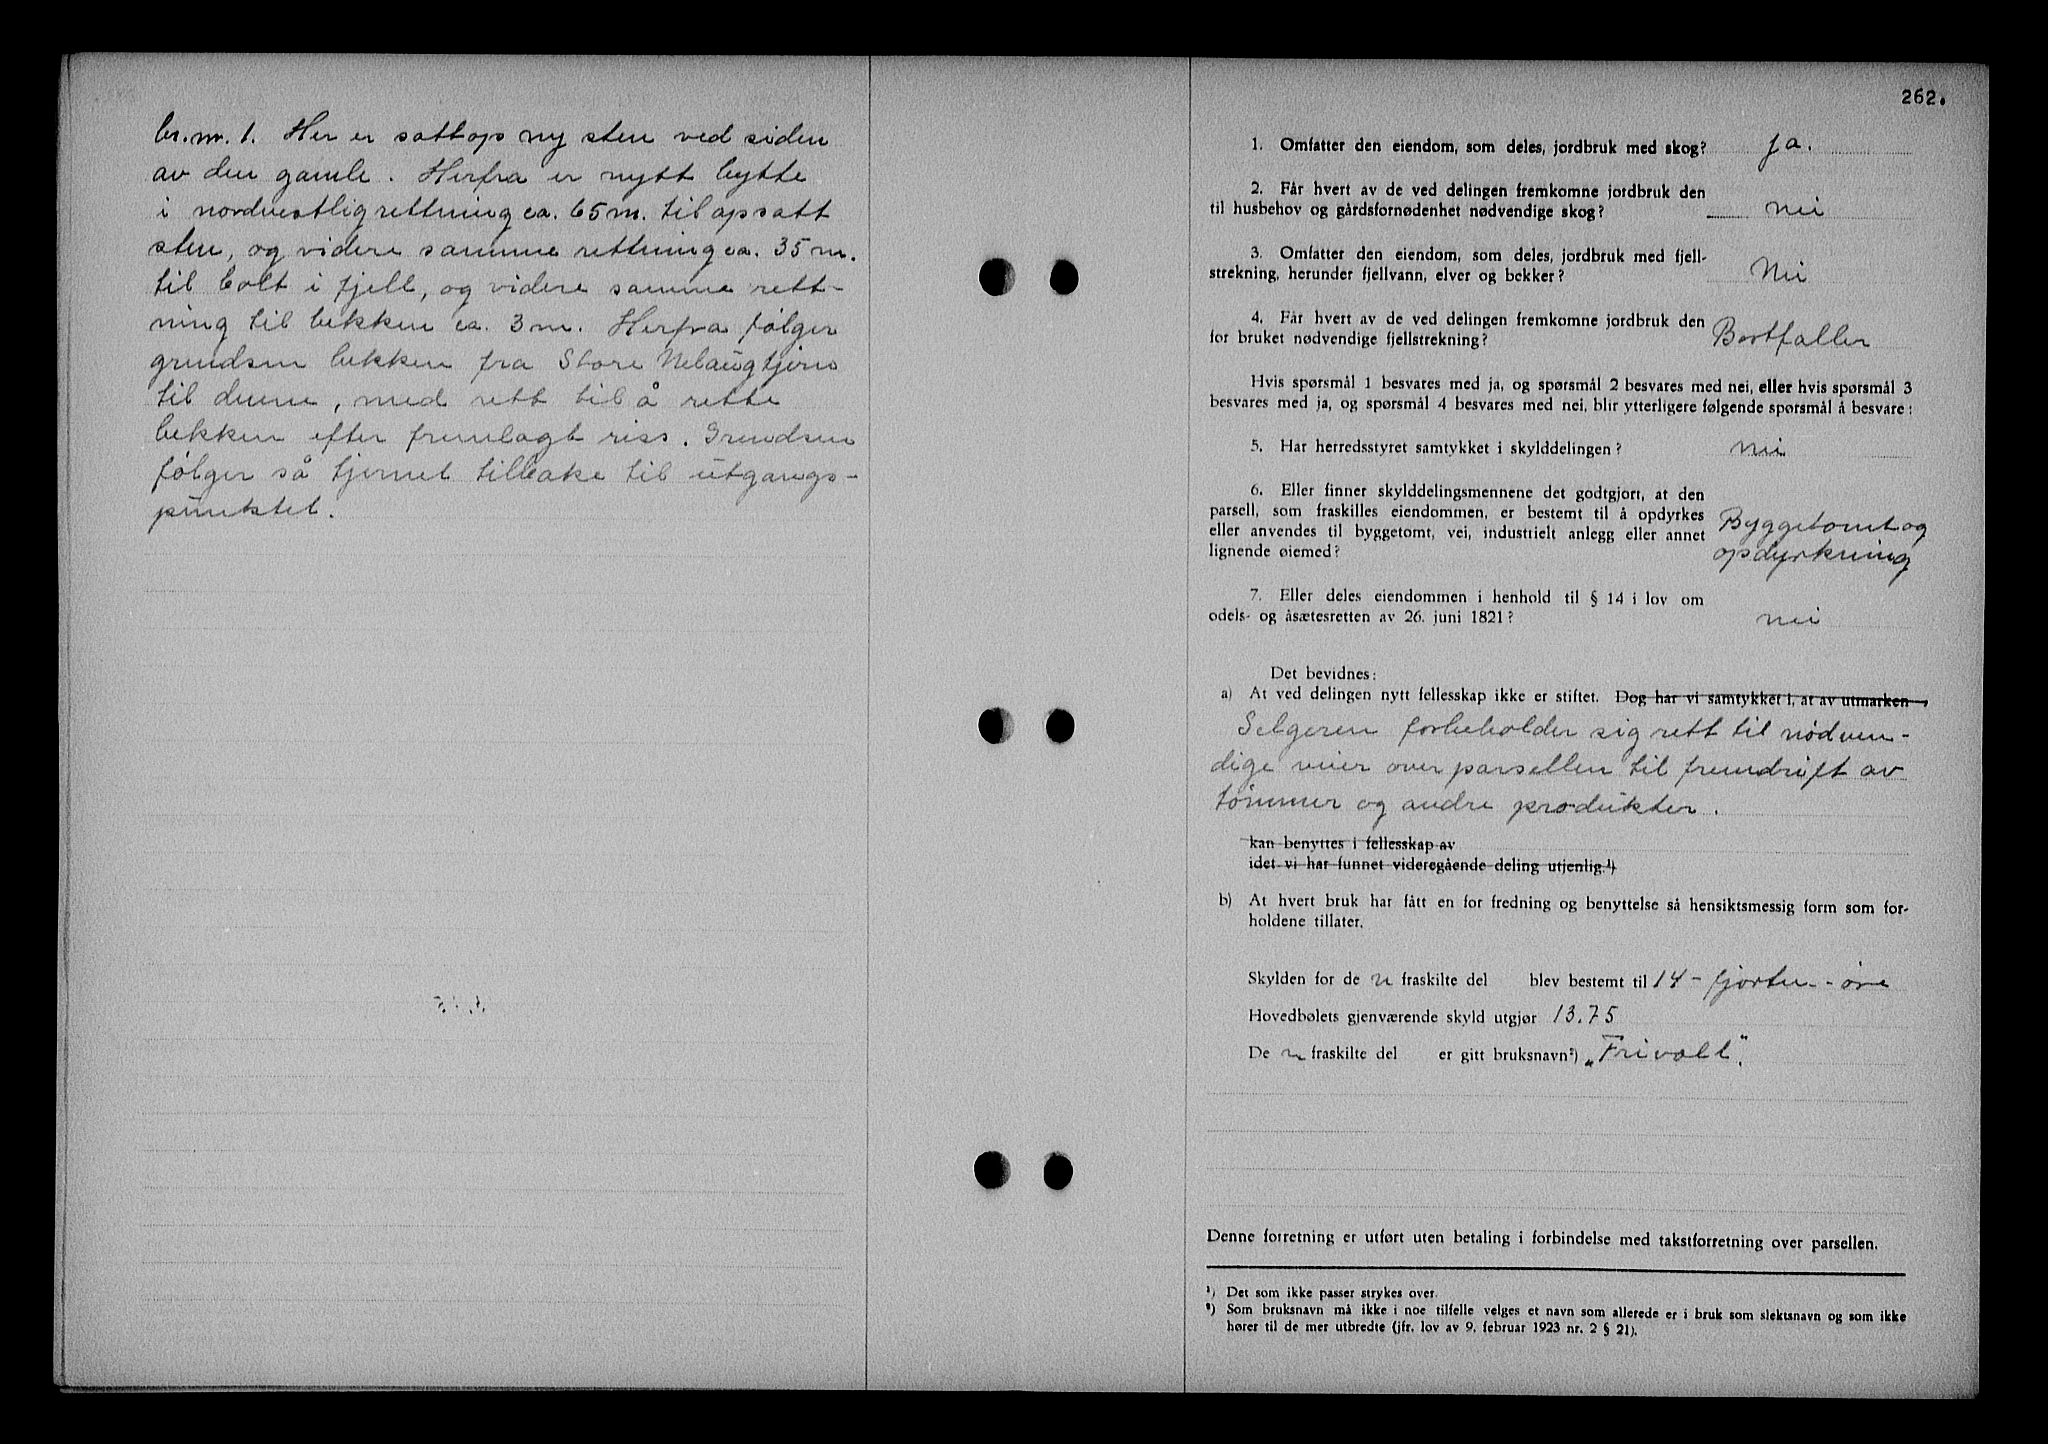 br.nr. 1. Her er satt op ny sten ved siden
av den gamle. Herfra er nytt bytte
i nordvestlig rettning ca. 65 m. til opsatt
sten, og videre samme rettning ca. 35 m.
til bolt i fjell, og videre samme rett-
ning til bekken ca. 3 m. Herfra følger
grendsen bekken fra Store Nelaugtjern
til denne, med rett til å rette
bekken efter fremlagt riss. Grendsen
følger så tjernet tilbake til utgangs-
punktet.
262.
1. Omfatter den eiendom, som deles, jordbruk med skog? Ja.
2. Får hvert av de ved delingen fremkomne jordbruk den
til husbehov og gårdsfornødenhet nødvendige skog? nei
3. Omfatter den eiendom, som deles, jordbruk med fjell-
strekning, herunder fjellvann, elver og bekker? Nei
4. Får hvert av de ved delingen fremkomne jordbruk den
for bruket nødvendige fjellstrekning? Bortfaller
Hvis spørsmål 1 besvares med ja, og spørsmål 2 besvares med nei, eller hvis spørsmål 3
besvares med ja, og spørsmål 4 besvares med nei, blir ytterligere følgende spørsmål å besvare:
5. Har herredsstyret samtykket i skylddelingen? nei
6. Eller finner skylddelingsmennene det godtgjort, at den
parsell, som fraskilles eiendommen, er bestemt til å opdyrkes
eller anvendes til byggetomt, vei, industrielt anlegg eller annet
lignende øiemed?
Byggetomt og
opdyrkning
7. Eller deles eiendommen i henhold til § 14 i lov om
odels- og åsætesretten av 26. juni 1821? nei
Det bevidnes:
a) At ved delingen nytt fellesskap ikke er stiftet. Dog har vi samtykket i, at av utmarken
Selgeren forbeholder sig rett til nødven-
dige veier over parsellen til fremdrift av
tømmer og andre produkter.
kan benyttes i fellesskap av
idet vi har funnet videregående deling utjenlig.¹)
b) At hvert bruk har fått en for fredning og benyttelse så hensiktsmessig form som for-
holdene tillater.
Skylden for de n fraskilte del blev bestemt til 14 - fjorten - øre
Hovedbølets gjenværende skyld utgjør 13.75
De n fraskilte del er gitt bruksnavn²) „Frivoll".
Denne forretning er utført uten betaling i forbindelse med takstforretning over parsellen.
¹) Det som ikke passer strykes over.
²) Som bruksnavn må ikke i noe tilfelle velges et navn som allerede er i bruk som slektsnavn og som ikke
hører til de mer utbredte (jfr. lov av 9. februar 1923 nr. 2 § 21).